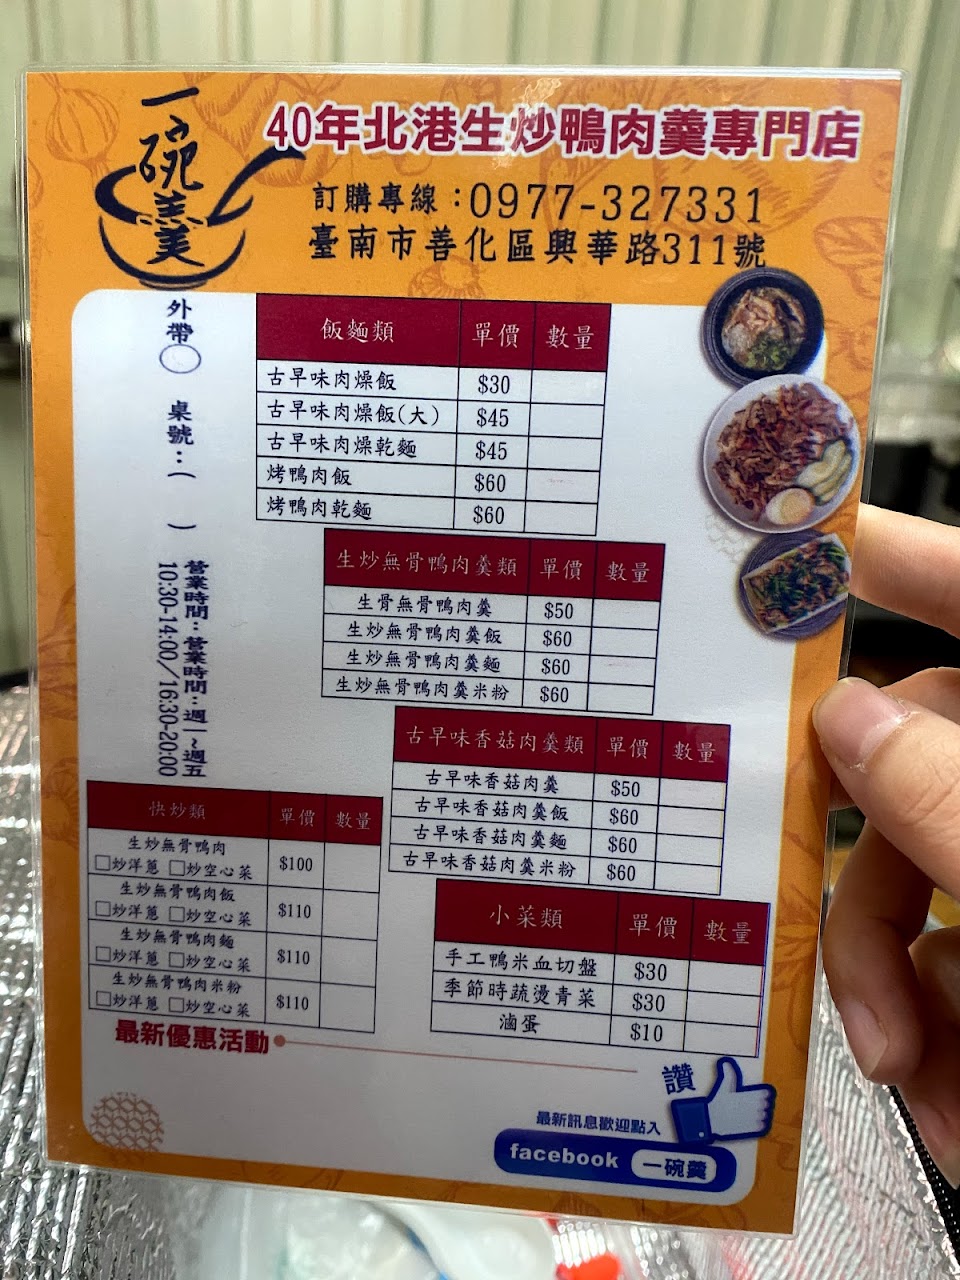 一碗羹
40年北港生炒鴨肉羹專門店
訂購專線：0977-327331
臺南市善化區興華路311號
外帶○
桌號：（ ）
營業時間：營業時間：週一~週五
10:30-14:00／16:30-20:00
飯麵類 單價 數量
古早味肉燥飯 $30
古早味肉燥飯(大) $45
古早味肉燥乾麵 $45
烤鴨肉飯 $60
烤鴨肉乾麵 $60
生炒無骨鴨肉羹類 單價 數量
生骨無骨鴨肉羹 $50
生炒無骨鴨肉羹飯 $60
生炒無骨鴨肉羹麵 $60
生炒無骨鴨肉羹米粉 $60
古早味香菇肉羹類 單價 數量
古早味香菇肉羹 $50
古早味香菇肉羹飯 $60
古早味香菇肉羹麵 $60
古早味香菇肉羹米粉 $60
快炒類 單價 數量
生炒無骨鴨肉
□炒洋蔥 □炒空心菜 $100
生炒無骨鴨肉飯
□炒洋蔥 □炒空心菜 $110
生炒無骨鴨肉麵
□炒洋蔥 □炒空心菜 $110
生炒無骨鴨肉米粉
□炒洋蔥 □炒空心菜 $110
小菜類 單價 數量
手工鴨米血切盤 $30
季節時蔬燙青菜 $30
滷蛋 $10
最新優惠活動
讚
最新訊息歡迎點入
facebook 一碗羹